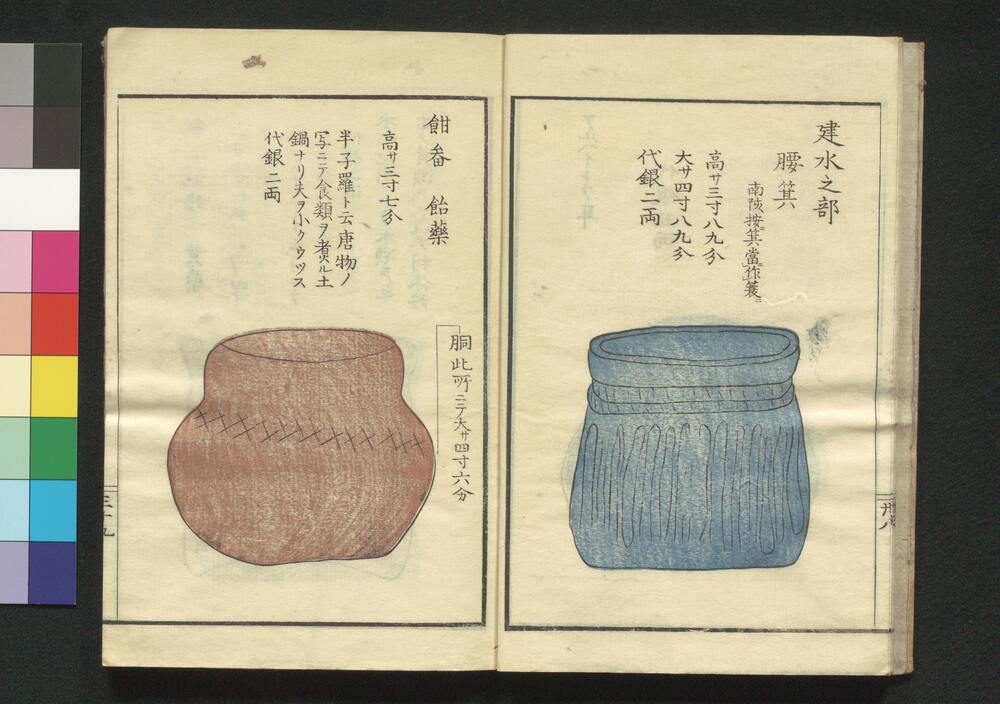 建水之部
腰箕
南陔按箕當作簑
高サ三寸八九分
大サ四寸八九分
代銀二両
卅八
餢
飴藥
高サ三寸七分
半子羅ト云唐物ノ
写ニテ食類ヲ煮ル土
鍋ナリ夫ヲ小クウツス
代銀二両
胴此所ニテ大サ四寸六分
三十九